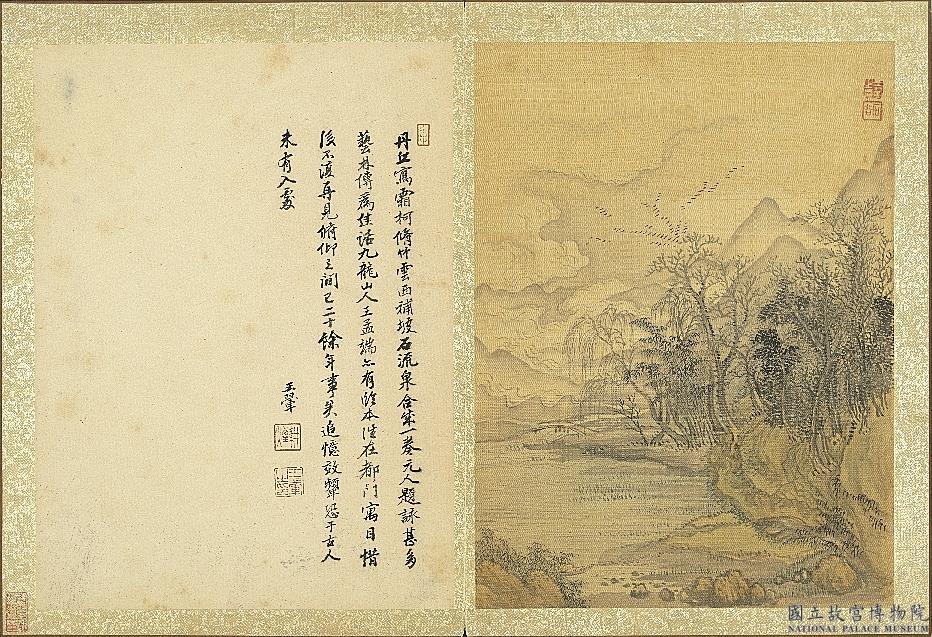 丹丘寫霜柯脩竹雲西補坡石流泉合成一卷元人題詠甚多
藝林傳為佳話九龍山人王孟端亦有臨本往在都門寓目惜
後不復再見俯仰之間已二十餘年事矣追憶效顰恐于古人
未有入處
王翬
國立故宮博物院
NATIONAL PALACE MUSEUM